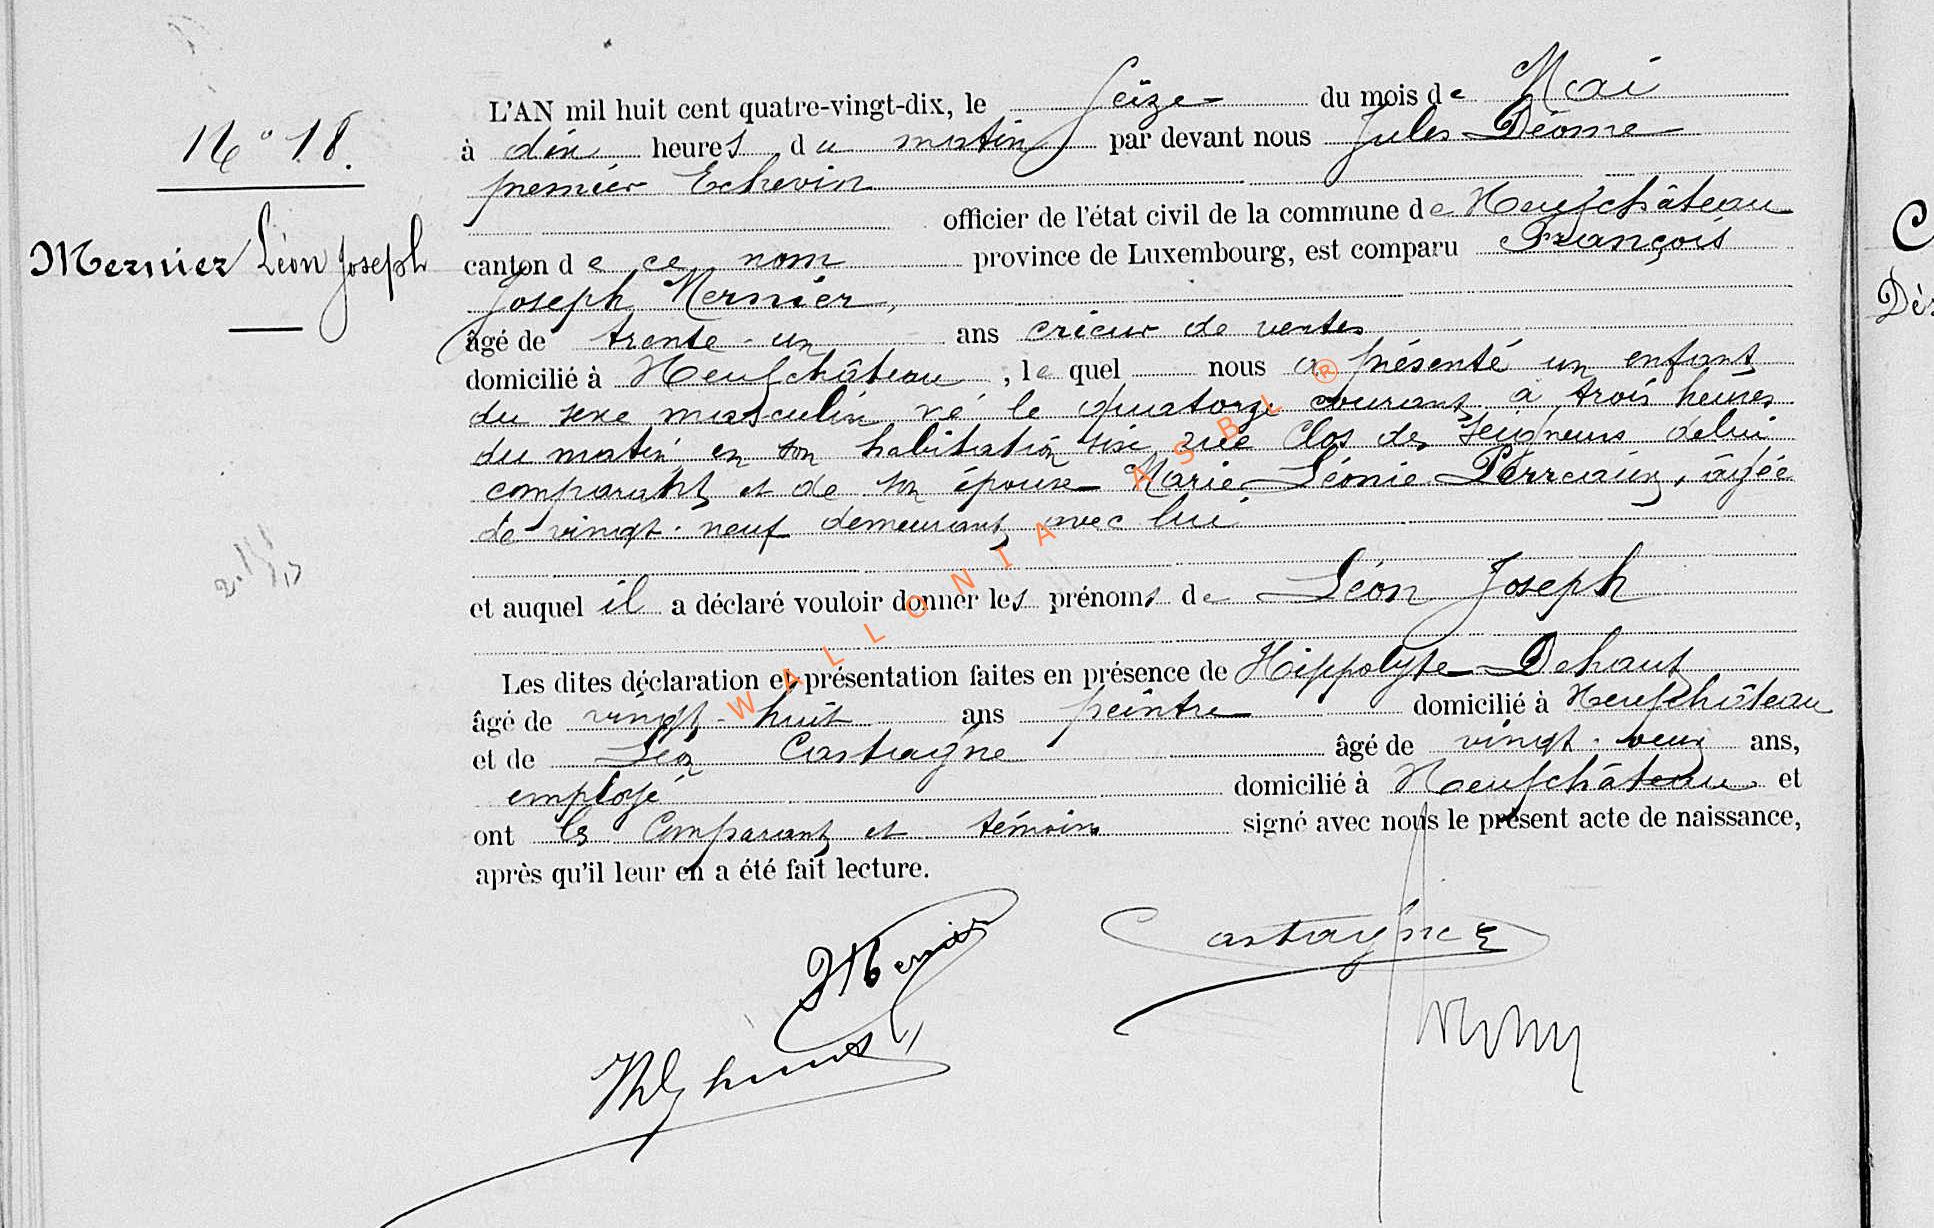 N° 18.
Mernier Léon Joseph
L'AN mil huit cent quatre-vingt-dix, le seize du mois de Mai
à dix heures du matin par devant nous Jules Déome
premier Echevin
officier de l'état civil de la commune de Neufchâteau
canton de ce nom province de Luxembourg, est comparu François
Joseph Mernier,
âgé de trente-un ans crieur de ventes
domicilié à Neufchâteau, le quel nous a présenté un enfant
du sexe masculin né le quatorze courant à trois heures
du matin en son habitation sise rue Clos des Seigneurs de lui
comparant et de son épouse Marie Léonie Perreaux, âgée
de vingt-neuf demeurant avec lui
et auquel il a déclaré vouloir donner les prénoms de Léon Joseph
Les dites déclaration et présentation faites en présence de Hippolyte Dehaut
âgé de vingt-huit ans peintre domicilié à Neufchâteau
et de Léon Castaigne âgé de vingt-deux ans,
employé domicilié à Neufchâteau et
ont les Comparant et témoins signé avec nous le présent acte de naissance,
après qu'il leur en a été fait lecture.
JMernier
Castaigne
WALLONIA ASBL ®
C
Dés